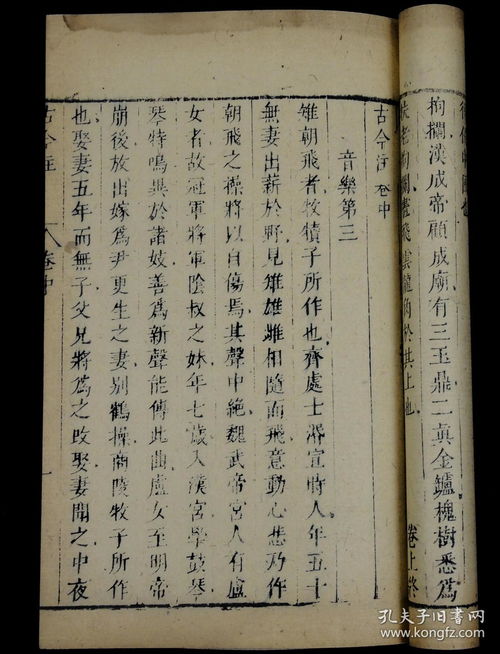 拘攔漢成帝顧成廟有三玉鼎二真金鑪槐樹悉爲
扶老拘攔畫飛雲龍角於其上也
卷上終
古今注 卷中
音樂第三
雉朝飛者牧犢子所作也齊處士湣宣時人年五十
無妻出薪於野見雉雄雌相隨而飛意動心悲乃作
朝飛之操將以自傷焉其聲中絕魏武帝宮人有盧
女者故冠軍將軍陰叔之妹年七歲入漢宮學鼓琴
琴特鳴異於諸妓善爲新聲能傳此曲盧女至明帝
崩後放出嫁爲尹更生之妻別鶴操商陵牧子所作
也娶妻五年而無子父兄將爲之改娶妻聞之中夜
古今注 卷中 一
孔夫子旧书网
www.kongfz.com